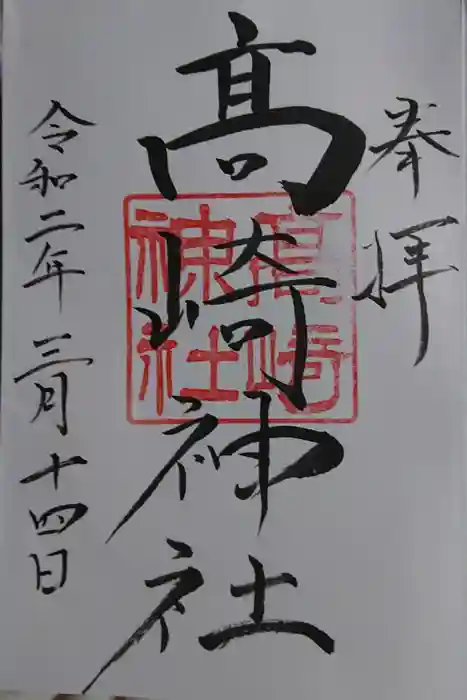 奉拝
高崎神社
高崎神社
令和二年三月十四日